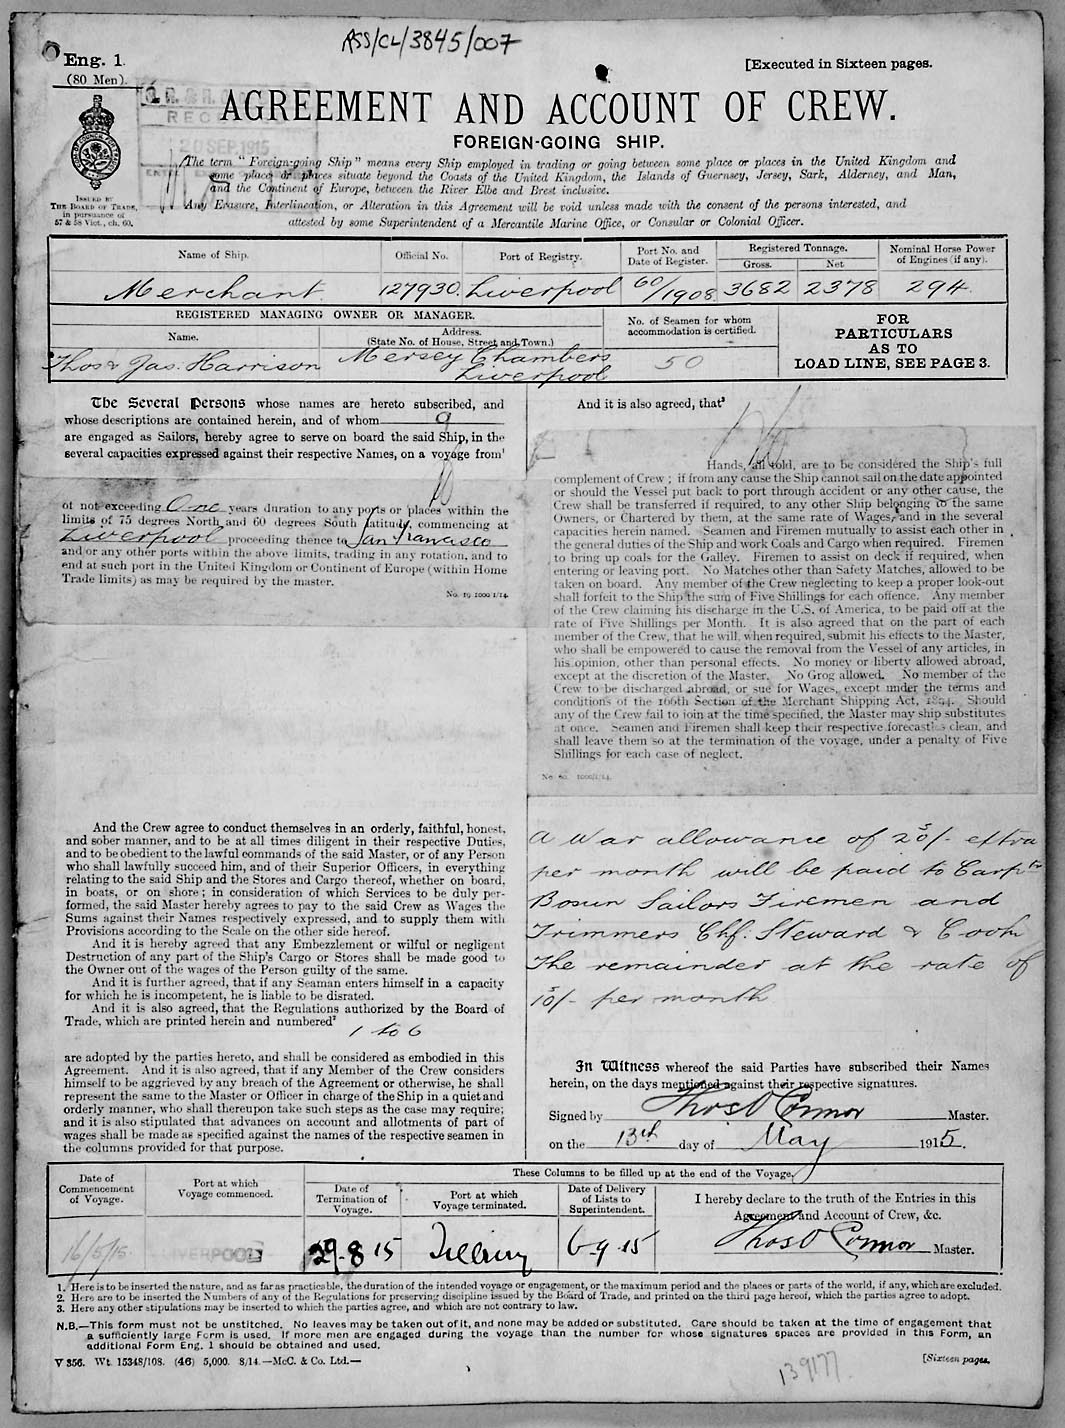 RSS/CL/3845/007
Eng. 1.
(80 Men).
[Executed in Sixteen pages.
20 SEP. 1915
AGREEMENT AND ACCOUNT OF CREW.
FOREIGN-GOING SHIP.
The term "Foreign-going Ship" means every Ship employed in trading or going between some place or places in the United Kingdom and
some place or places situate beyond the Coasts of the United Kingdom, the Islands of Guernsey, Jersey, Sark, Alderney, and Man,
and the Continent of Europe, between the River Elbe and Brest inclusive.
Any Erasure, Interlineation, or Alteration in this Agreement will be void unless made with the consent of the persons interested, and
attested by some Superintendent of a Mercantile Marine Office, or Consular or Colonial Officer.
ISSUED BY
THE BOARD OF TRADE,
in pursuance of
57 & 58 Vict., ch. 60.
Name of Ship. Official No. Port of Registry. Port No. and Date of Register. Registered Tonnage. Gross. Net Nominal Horse Power of Engines (if any).
Merchant 127930. Liverpool 60/1908 3682 2378 294
REGISTERED MANAGING OWNER OR MANAGER.
Name. Address. (State No. of House, Street and Town.) No. of Seamen for whom accommodation is certified.
FOR PARTICULARS AS TO LOAD LINE, SEE PAGE 3.
Thos & Jas. Harrison Mersey Chambers Liverpool 50
The Several Persons whose names are hereto subscribed, and
whose descriptions are contained herein, and of whom 9
are engaged as Sailors, hereby agree to serve on board the said Ship, in the
several capacities expressed against their respective Names, on a voyage from¹
of not exceeding One years duration to any ports or places within the
limits of 75 degrees North and 60 degrees South latitude, commencing at
Liverpool proceeding thence to San Francisco
and/or any other ports within the above limits, trading in any rotation, and to
end at such port in the United Kingdom or Continent of Europe (within Home
Trade limits) as may be required by the master.
No. 19 1000 1/14.
And the Crew agree to conduct themselves in an orderly, faithful, honest,
and sober manner, and to be at all times diligent in their respective Duties,
and to be obedient to the lawful commands of the said Master, or of any Person
who shall lawfully succeed him, and of their Superior Officers, in everything
relating to the said Ship and the Stores and Cargo thereof, whether on board,
in boats, or on shore; in consideration of which Services to be duly per-
formed, the said Master hereby agrees to pay to the said Crew as Wages the
Sums against their Names respectively expressed, and to supply them with
Provisions according to the Scale on the other side hereof.
And it is hereby agreed that any Embezzlement or wilful or negligent
Destruction of any part of the Ship's Cargo or Stores shall be made good to
the Owner out of the wages of the Person guilty of the same.
And it is further agreed, that if any Seaman enters himself in a capacity
for which he is incompetent, he is liable to be disrated.
And it is also agreed, that the Regulations authorized by the Board of
Trade, which are printed herein and numbered² 1 to 6
are adopted by the parties hereto, and shall be considered as embodied in this
Agreement. And it is also agreed, that if any Member of the Crew considers
himself to be aggrieved by any breach of the Agreement or otherwise, he shall
represent the same to the Master or Officer in charge of the Ship in a quiet and
orderly manner, who shall thereupon take such steps as the case may require;
and it is also stipulated that advances on account and allotments of part of
wages shall be made as specified against the names of the respective seamen in
the columns provided for that purpose.
And it is also agreed, that³
Hands, all told, are to be considered the Ship's full
complement of Crew; if from any cause the Ship cannot sail on the date appointed
or should the Vessel put back to port through accident or any other cause, the
Crew shall be transferred if required, to any other Ship belonging to the same
Owners, or Chartered by them, at the same rate of Wages, and in the several
capacities herein named. Seamen and Firemen mutually to assist each other in
the general duties of the Ship and work Coals and Cargo when required. Firemen
to bring up coals for the Galley. Firemen to assist on deck if required, when
entering or leaving port. No Matches other than Safety Matches, allowed to be
taken on board. Any member of the Crew neglecting to keep a proper look-out
shall forfeit to the Ship the sum of Five Shillings for each offence. Any member
of the Crew claiming his discharge in the U.S. of America, to be paid off at the
rate of Five Shillings per Month. It is also agreed that on the part of each
member of the Crew, that he will, when required, submit his effects to the Master,
who shall be empowered to cause the removal from the Vessel of any articles, in
his opinion, other than personal effects. No money or liberty allowed abroad,
except at the discretion of the Master. No Grog allowed. No member of the
Crew to be discharged abroad, or sue for Wages, except under the terms and
conditions of the 166th Section of the Merchant Shipping Act, 1894. Should
any of the Crew fail to join at the time specified, the Master may ship substitutes
at once. Seamen and Firemen shall keep their respective forecastles clean, and
shall leave them so at the termination of the voyage, under a penalty of Five
Shillings for each case of neglect.
No. 60. 1000/1/14.
A War allowance of 20/- extra
per month will be paid to Carptr
Bosun Sailors Firemen and
Trimmers Chf. Steward & Cook
The remainder at the rate of
10/- per month
In Witness whereof the said Parties have subscribed their Names
herein, on the days mentioned against their respective signatures.
Signed by Thos O Connor Master.
on the 13th day of May 1915.
These Columns to be filled up at the end of the Voyage.
Date of Commencement of Voyage. Port at which Voyage commenced. Date of Termination of Voyage. Port at which Voyage terminated. Date of Delivery of Lists to Superintendent. I hereby declare to the truth of the Entries in this Agreement and Account of Crew, &c.
16/5/15 LIVERPOOL 29-8 15 6-9-15 Thos O Connor Master.
1. Here is to be inserted the nature, and as far as practicable, the duration of the intended voyage or engagement, or the maximum period and the places or parts of the world, if any, which are excluded.
2. Here are to be inserted the Numbers of any of the Regulations for preserving discipline issued by the Board of Trade, and printed on the third page hereof, which the parties agree to adopt.
3. Here any other stipulations may be inserted to which the parties agree, and which are not contrary to law.
N.B.—This form must not be unstitched. No leaves may be taken out of it, and none may be added or substituted. Care should be taken at the time of engagement that
a sufficiently large Form is used. If more men are engaged during the voyage than the number for whose signatures spaces are provided in this Form, an
additional Form Eng. 1 should be obtained and used.
V 356. Wt. 15348/108. (46) 5,000. 8/14.—McC. & Co. Ltd.—
[Sixteen pages.
139177